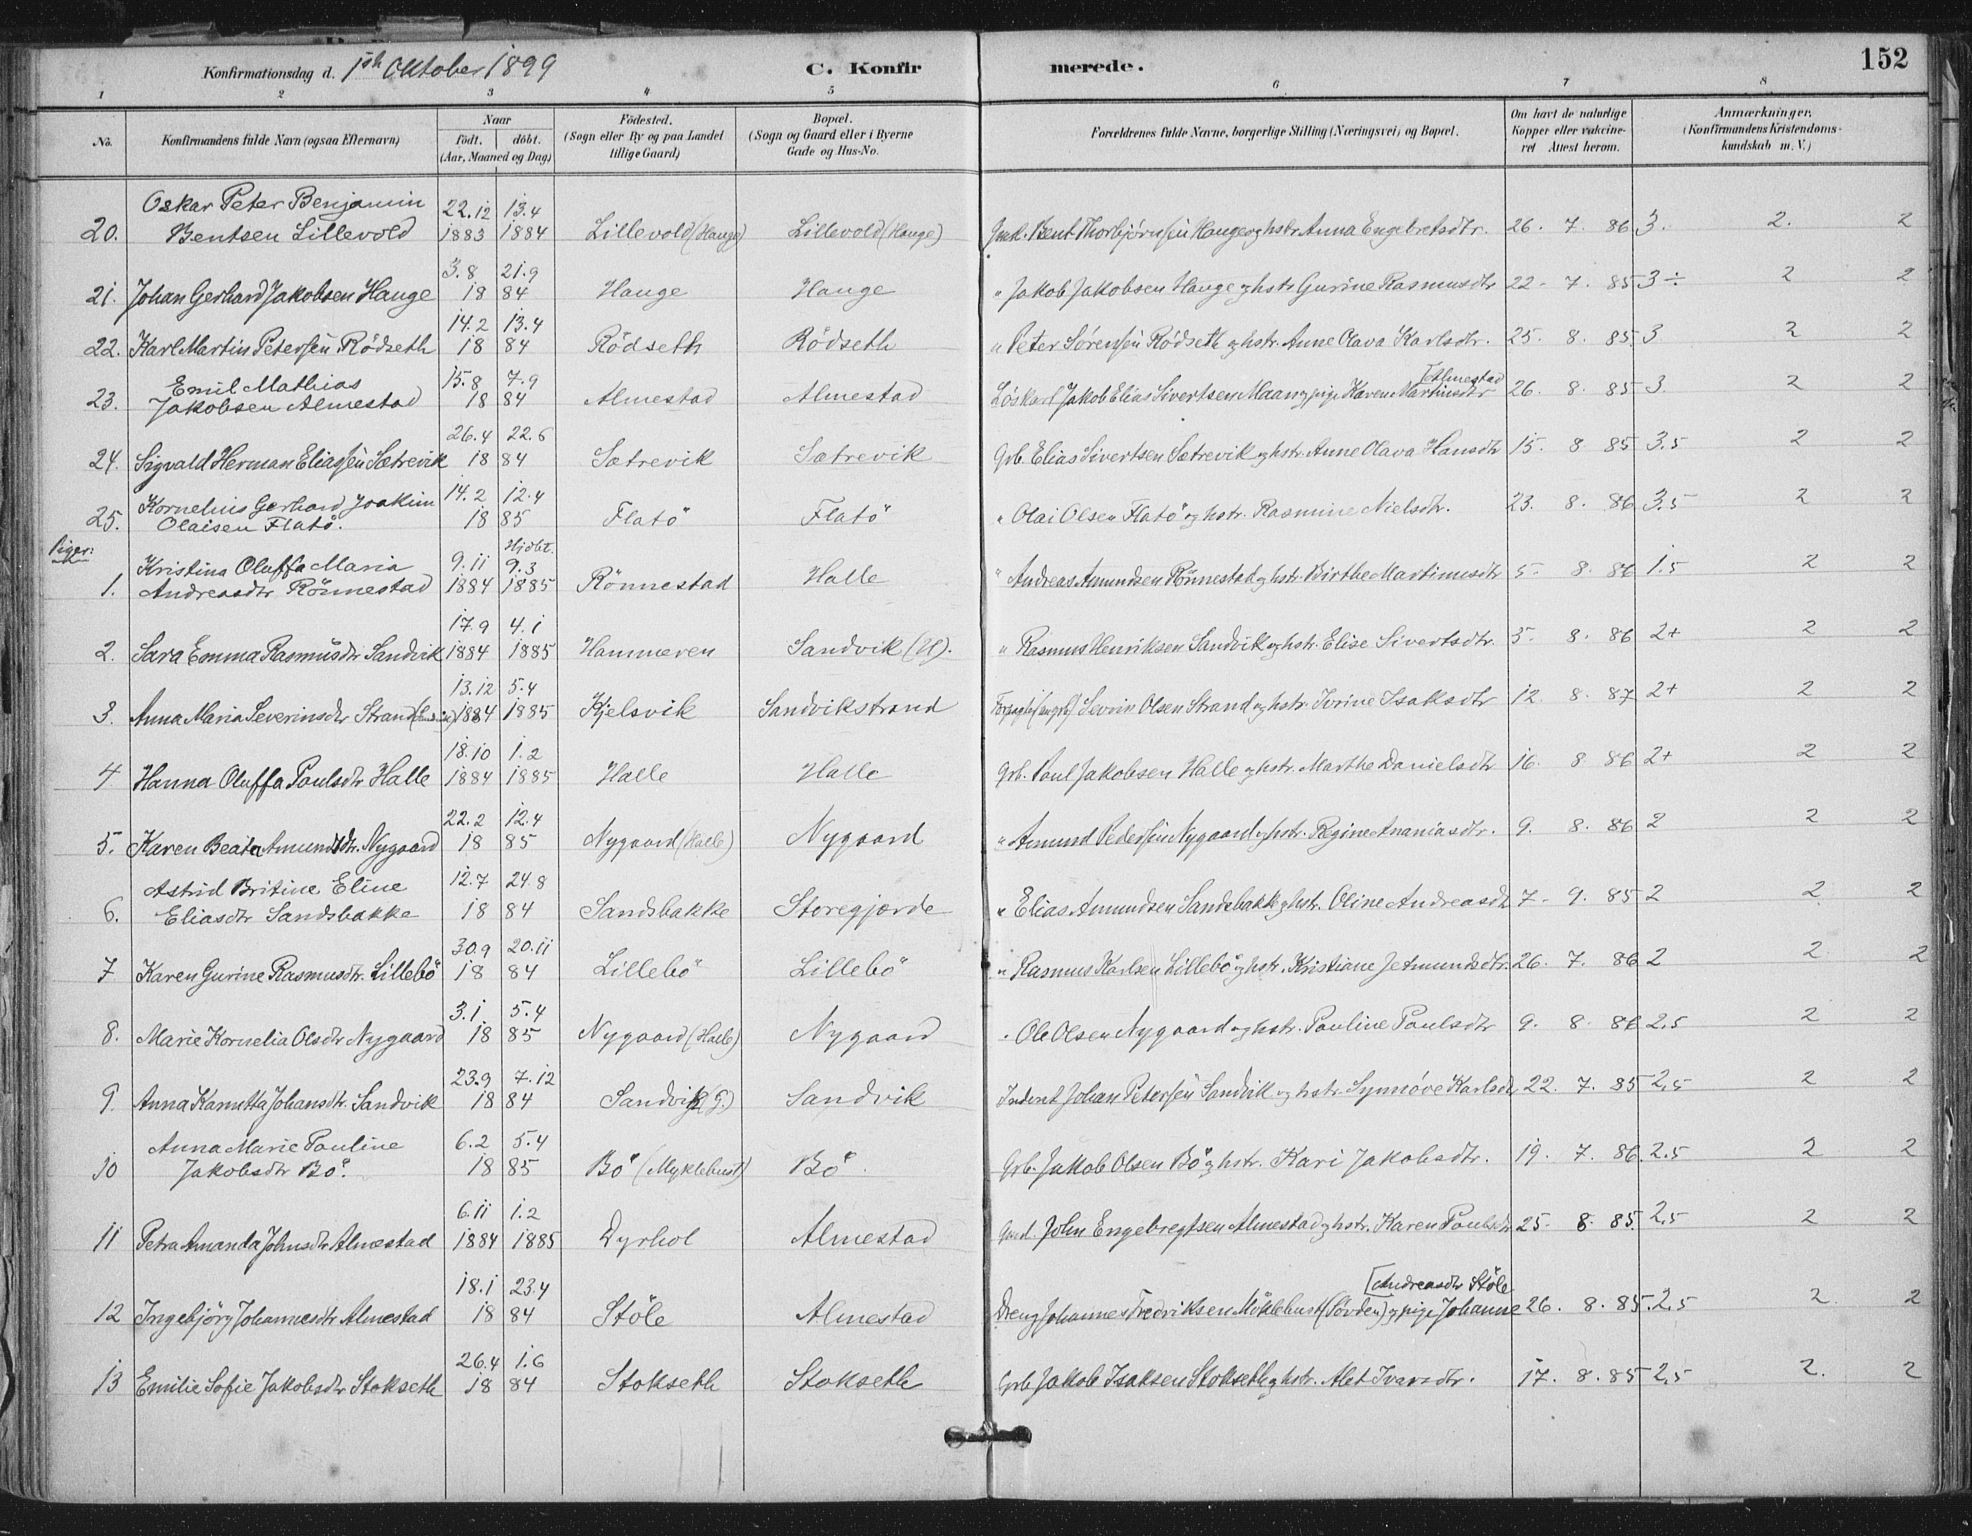 152
Konfirmationsdag d. 1ste Oktober 1899 C. Konfirmerede.
1 2 3 4 5 6 7 8
No. Konfirmandens fulde Navn (ogsaa Efternavn) Naar født. døbt. (Aar, Maaned og Dag) Fødested. (Sogn eller By og paa Landet tillige Gaard) Bopæl. (Sogn og Gaard eller i Byerne Gade og Hus-No. Forældrenes fulde Navne, borgerlige Stilling (Næringsvei) og Bopæl. Om havt de naturlige Kopper eller vakcineret Attest herom. Anmærkninger. (Konfirmandens Kristendomskundskab m. V.)
Oskar Peter Benjamin 22.12 13.4
20. Bentsen Lillevold 1883 1884 Lillevold (Hauge) Lillevold (Hauge) Bent Thorbjørnsen Hauge og hstr. Anna Engebretsdtr. 26. 7. 86 3. 2. 2
3.8 21.9
21. Johan Gerhard Jakobsen Hauge 18 84 Hauge Hauge " Jakob Jakobsen Hauge og hstr Gurine Rasmusdtr 22. 7. 85 3 ÷ 2 2
14.2 13.4
22. Karl Martin Petersen Rödseth 18 84 Rödseth Rödseth " Peter Sørensen Rödseth og hstr. Anne Olava Karlsdtr. 25. 8. 85 3 2 2
Emil Mathias 15.8 7.9 [Almestad
23. Jakobsen Almestad 18 84 Almestad Almestad Löskarl Jakob Elias Sivertsen Maan og pige Karen Martinusdtr 26. 8. 85 3. 2 2
26.4 22.6
24. Sigvald Herman Eliassen Sætrevik 18 84 Sætrevik Sætrevik Grb. Elias Sivertsen Sætrevik og hstr. Anne Olava Hansdtr 15. 8 85 3.5 2 2
Kornelius Gerhard Joakim 14.2 12.4
25. Olaisen Flatö. 18 85 Flatö Flatö " Olai Olsen Flatö og hstr. Rasmine Nielsdtr. 23. 8. 86 3.5 2 2
Piger: Hjdbt.
Kristina Oluffa Maria 9.11 9.3
1. Andreasdtr Rönnestad 1884 1885 Rönnestad Halle " Andreas Amundsen Rönnestad og hstr. Birthe Martinusdtr 5. 8. 86 1.5 2 2
17.9 4.1
2. Sara Emma Rasmusdtr Sandvik 1884 1885 Hammeren Sandvik (U). " Rasmus Henriksen Sandvik og hstr. Elise Sivertsdtr. 5. 8. 86 2+ 2 2
13.12 5.4
3. Anna Maria Severinsdtr Strand 1884 1885 Kjelsvik Sandvikstrand Sevrin Olsen Strand og hstr. Ivrine Isaksdtr 12. 8. 87 2+ 2 2
18.10 1.2
4 Hanna Oluffa Paulsdtr Halle 1884 1885 Halle Halle Grb. Paul Jakobsen Halle og hstr. Marthe Danielsdtr 16. 8 86 2+ 2 2
22.2 12.4
5. Karen Beata Amundsdtr. Nygaard 18 85 Nygaard (Halle) Nygaard " Amund Pedersen Nygaard og hstr. Regine Ananiasdtr. 9. 8. 86 2 2 2
Astrid Britine Eline 12.7 24.8
6. Eliasdtr Sandsbakke 18 84 Sandsbakke Storegjærde " Elias Amundsen Sandsbakk og hstr. Oline Andreasdtr 7. 9. 85 2 2 2
30.9 20.11
7 Karen Gurine Rasmusdtr. Lillebö 18 84 Lillebö Lillebö " Rasmus Karlsen Lillebö og hstr. Kristiane Jetmundsdtr. 26. 7. 86 2 2 2
3.1 5.4
8. Marie Kornelia Olsdtr Nygaard 18 85 Nygaard (Halle) Nygaard " Ole Olsen Nygaard og hstr. Pauline Paulsdtr 9. 8. 86 2.5 2 2
23.9 7.12
9. Anna Kanutta Johansdtr. Sandvik 18 84 Sandvik (G.) Sandvik Inderst Johan Petersen Sandvik og hstr. Synnöve Karlsdtr 22. 7. 85 2.5 2 2
Anna Marie Pauline 6.2 5.4
10 Jakobsdtr Bö. 18 85 Bö (Myklebust) Bö. Grb. Jakob Olsen Bö og hstr. Kari Jakobsdtr. 19. 7. 86. 2.5 2 2
6.11 1.2
11 Petra Amanda Johnsdtr Almestad 1884 1885 Dyrhol Almestad John Engebregtsen Almestad og hstr. Karen Paulsdtr 25. 8. 85. 2.5 2 2
18.1 23.4 [Andreasdtr Stöle
12 Ingebjörg Johannesdtr Almestad 18 84 Stöle Almestad Dreng Johannes Fredriksen Möklebust (Sövden) og pige Johanne 26. 8. 85. 2.5 2 2
26.4 1.6
13 Emilie Sofie Jakobsdtr Stokseth 18 84 Stokseth Stokseth Grb Jakob Isaksen Stokseth og hstr. Alet Ivarsdtr. 17. 8. 85 2.5 2. 2